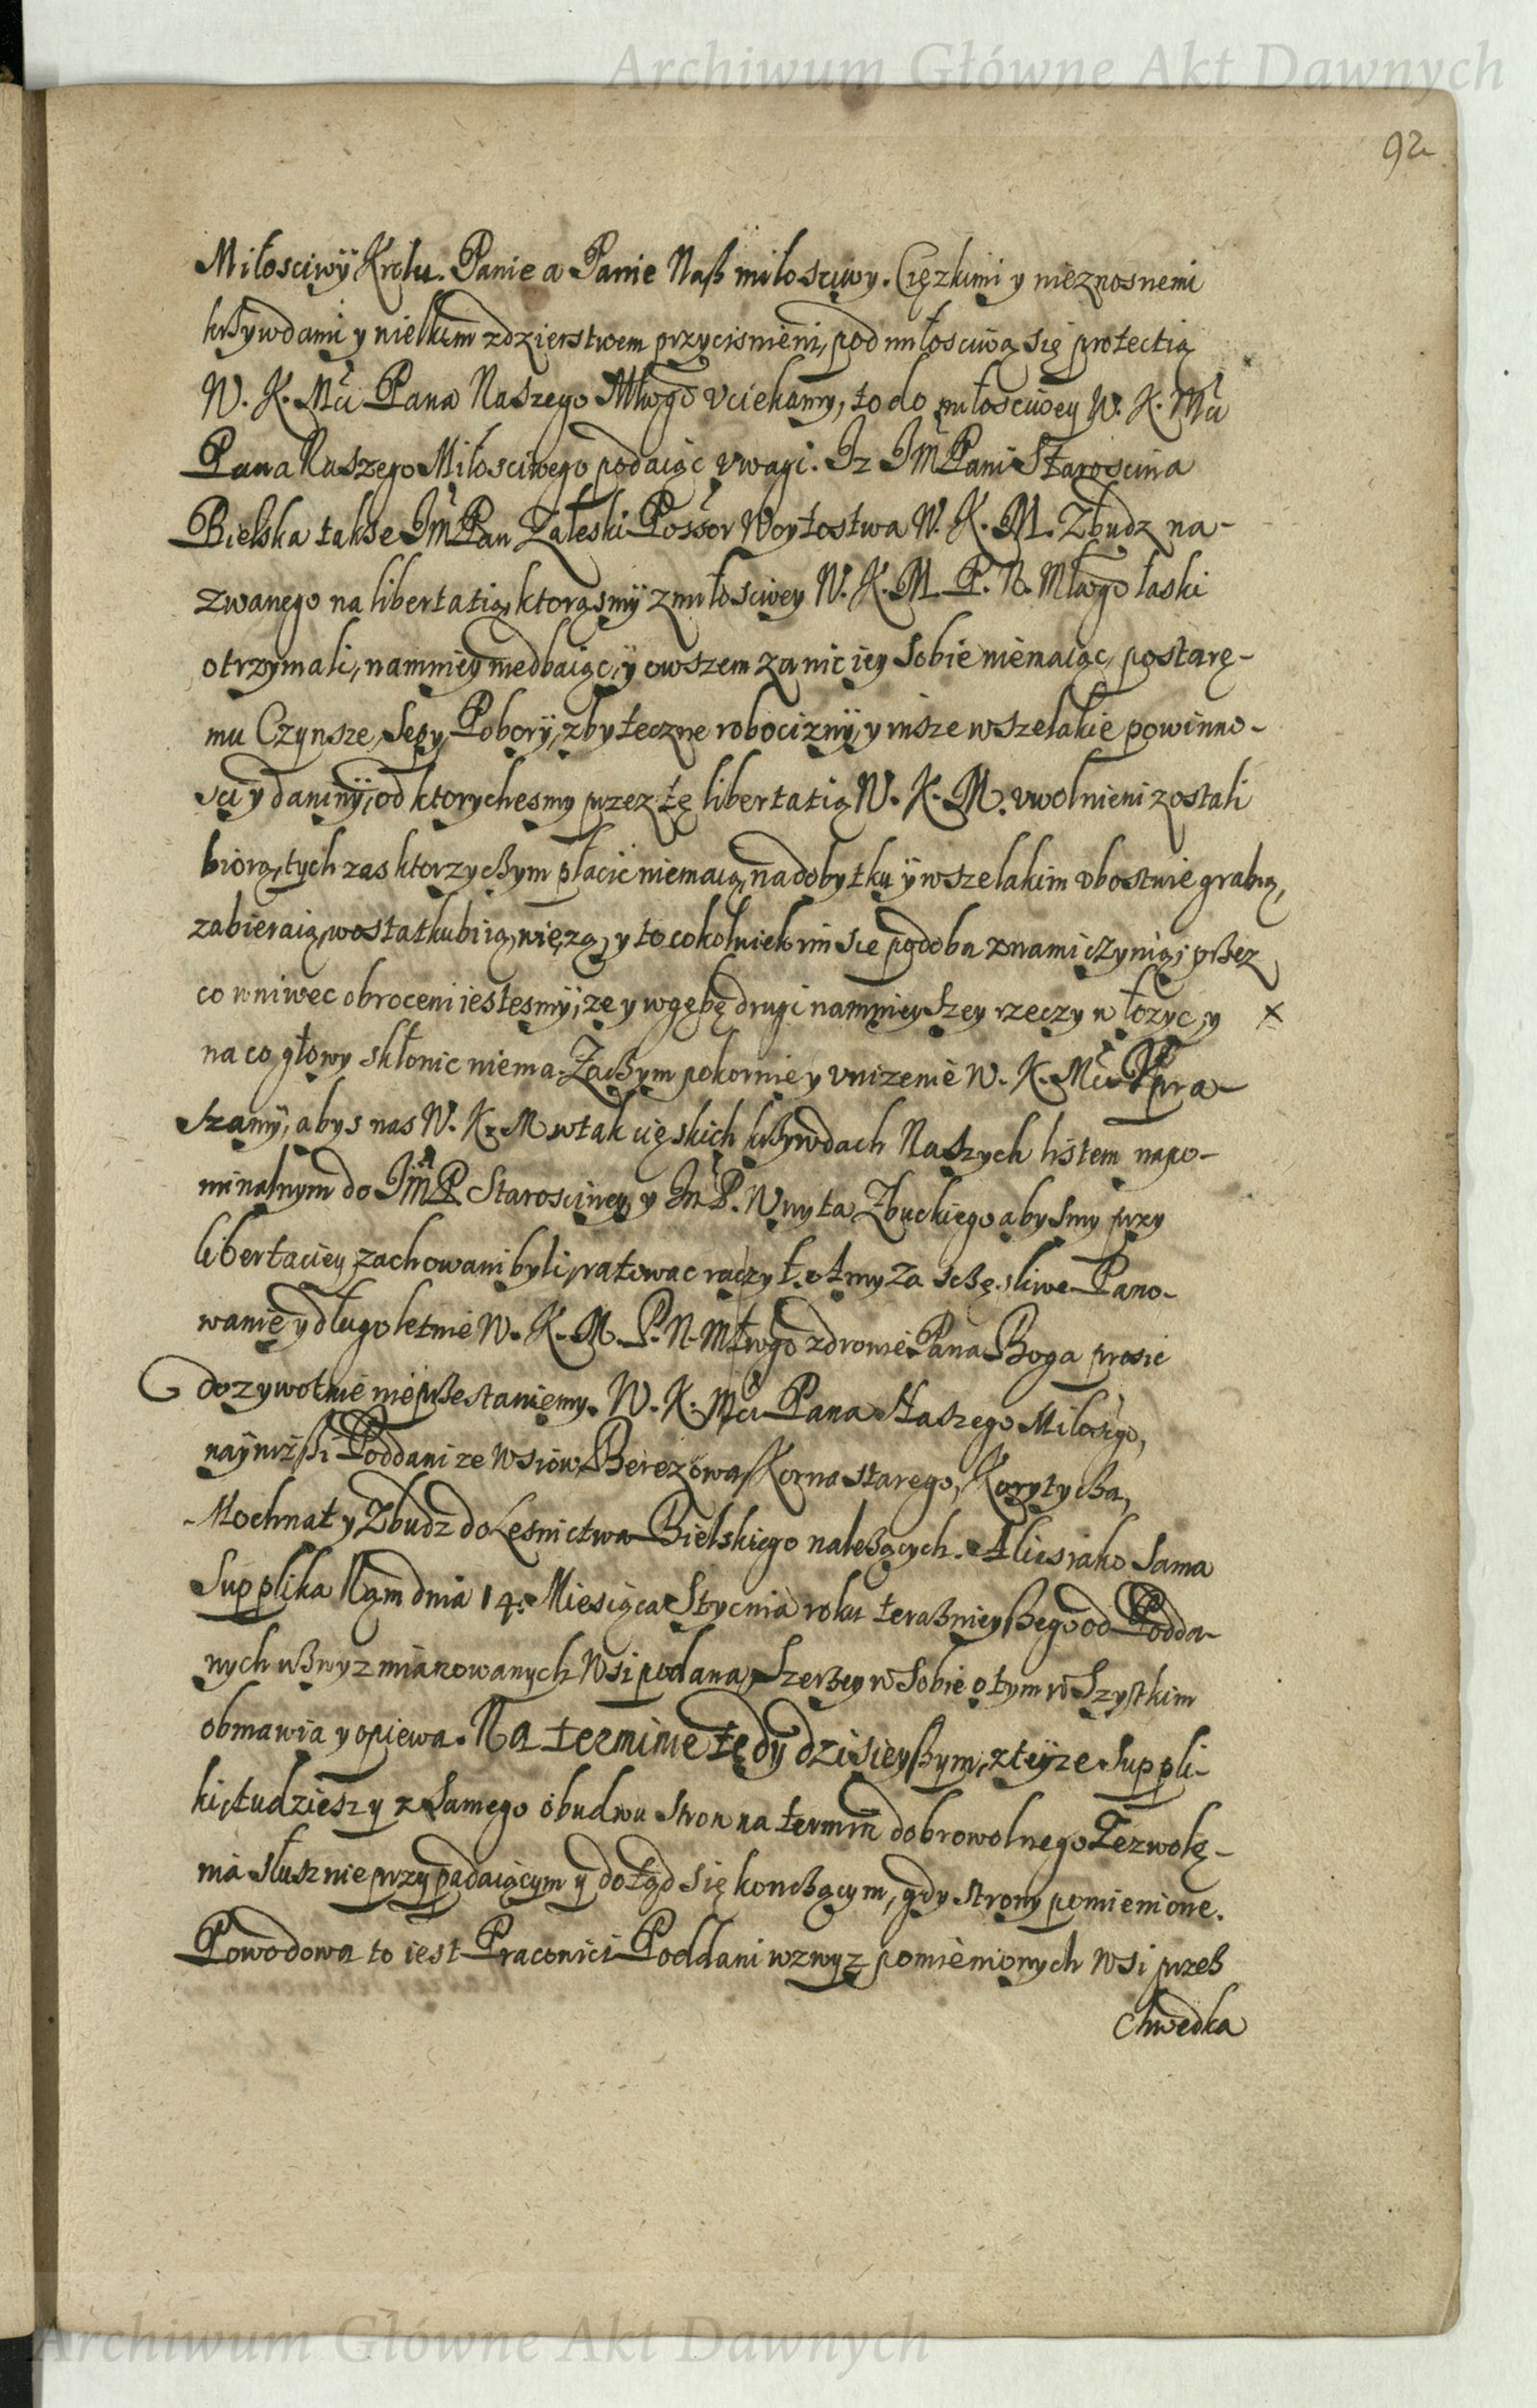 Archiwum Główne Akt Dawnych
92
Miłosciwÿ Krolu. Panie a Panie Naß miłosciwy. Cięzkimi y nieznosnemi
krzywdami y wielkim zdzierstwem przycisnieni, pod miłosciwą się protectią
W. K. Mći Pana Naszego Młwgo vciekamy, to do miłosciwey W. K. Mći
Pana Naszego Miłosciwego podaiąc vwagi. Iz ImPani Starościna
Bielska takse ImPan Zaleski Possor Woytostwa W. K. M. Zbudz na-
zwanego na libertatią, ktorąsmÿ z miłosciwey W. K. M. P. N. Mławgo łaski
otrzymali, namniey niedbaiąc, ÿ owszem za nic iey sobie niemaiąc, postarę-
mu Czynsze, Sepy, Poborÿ, zbyteczne robociznÿ, y insze wszelakie powinno-
sci y daninÿ, od ktorychesmy przez tę libertatią W. K. M. vwolnieni zostali
biorą, tych zas ktorzy czym płacic niemaią, na dobytku ÿ wszelakim vbostwie grabią,
zabieraią, wostatku biią, więzą, y to cokolwiek im sie podoba znami czynią; przez
co wniwec obroceni iestesmÿ, ze y wgębę drugi namnieyszey rzeczy włozyc, y
na co głowy skłonic niema. Zaczym pokornie y vnizenie W. K. Mći Vpra-
szamÿ, abys nas W. K. M wtak cięskich krzywdach Naszych listem napo-
minalnym do ImP. Starosciney y ImP. Wuyta Zbuckiego abysmy przy
libertaciey zachowani byli, ratowac raczył. A my za sczęsliwe Pano-
wanie y długoletnie W. K. M. P. N. Młwgo zdrowie Pana Boga prosic
dozywotnie nieprzestaniemy. W. K. Mći Pana Naszego Miłosgo,
naÿnizßi Poddani ze Wsiow Berezowa, Korna starego, Korytycza,
Mochnat y Zbudz do Lesnictwa Bielskiego nalezących. A lic siako sama
Supplika Nam dnia 14. Miesiąca Stycnia roku teraznieyßego od Podda-
nych wzwyz mianowanych Wsi podana, szerzey w sobie o tym wszystkim
obmawia y opiewa. Na terminie tedy dzisieyßym, z teÿze Suppli-
ki, tudziesz y z samego obudwu stron na termin dobrowolnego Zezwolę-
nia słusznie przypadaiącym y dotąd się konczącym, gdy strony pomienione.
Powodowa to iest Pracowici Poddani wzwyz pomienionych Wsi przez
Chwedka
Archiwum Główne Akt Dawnych